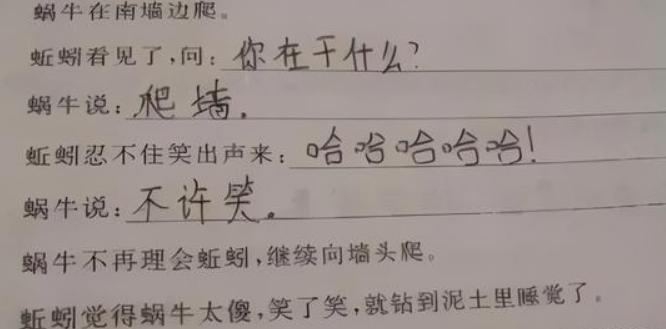 蜗牛在南墙边爬。
蚯蚓看见了,问:你在干什么?
蜗牛说:爬墙.
蚯蚓忍不住笑出声来:哈哈哈哈哈!
蜗牛说:不许笑。
蜗牛不再理会蚯蚓,继续向墙头爬。
蚯蚓觉得蜗牛太傻,笑了笑,就钻到泥土里睡觉了。